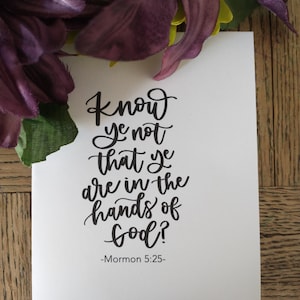 Know
ye not
that ye
are in the
hands of
God?
-Mormon 5:25-